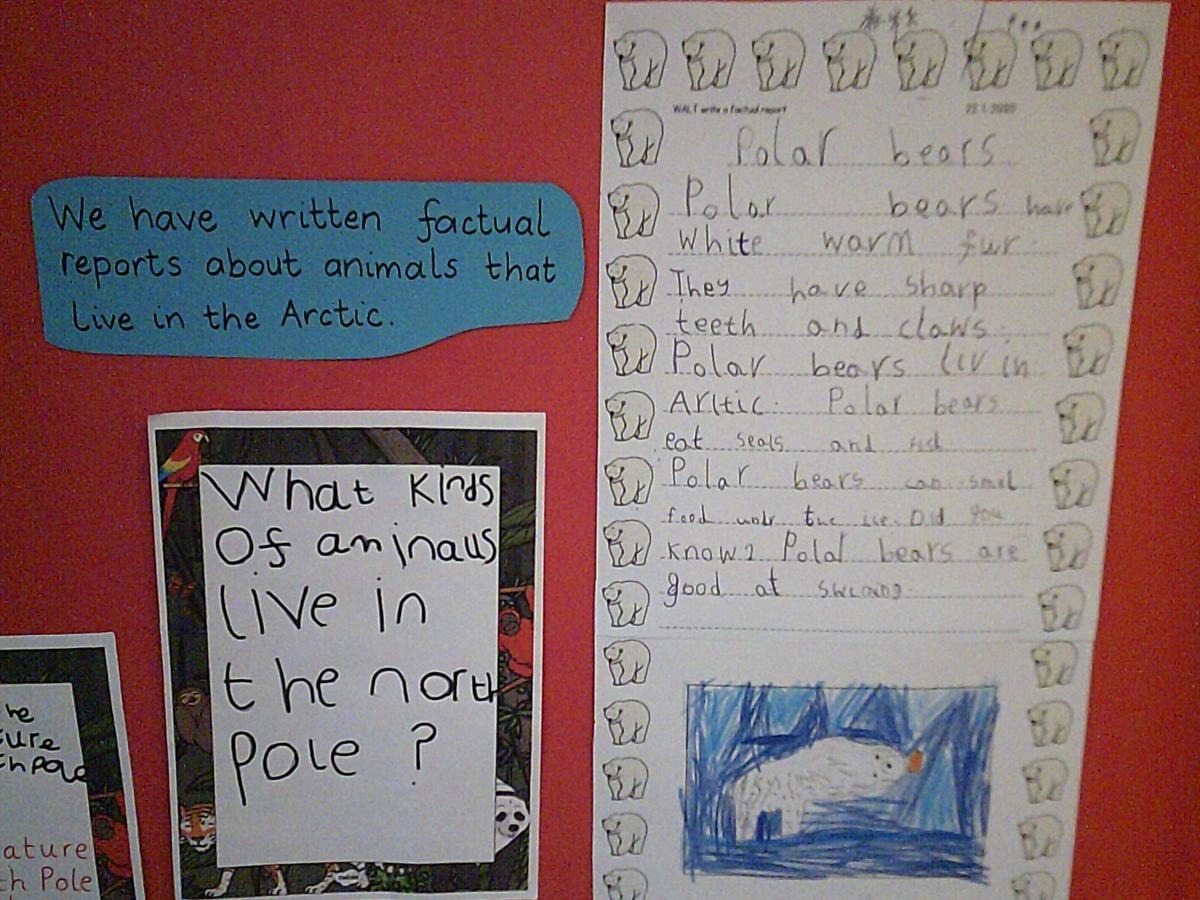 We have written factual
reports about animals that
live in the Arctic.
What kinds
Of aminaus
live in
the north
pole ?
he
ure
thpole
ature
th Pole
WALT write a factual report
22.1.2020
Polar bears
Polar bears have
white warm fur.
They have sharp
teeth and claws.
Polar bears liv in
Arctic. Polar bears
eat seals and fish
Polar bears can smel
food undr the ice. Did you
know? Polar bears are
good at